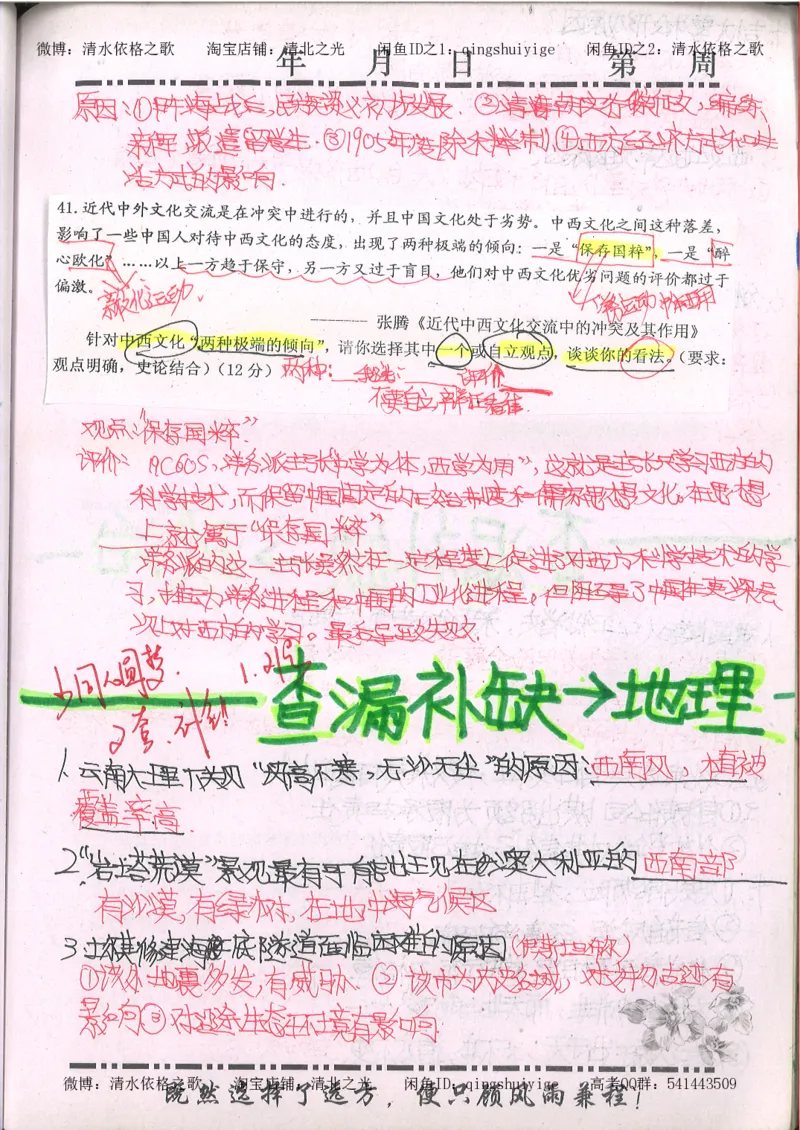 微博：清水依格之歌 淘宝店铺：清北之光 闲鱼ID之1：qingshuiyige 闲鱼ID之2：清水依格之歌
年 月 日 第 周
原因：①甲午海战后，民族资本主义初步发展．②清末新政，编练
新军，派遣留学生．③1905年废除科举制④西方经济方式和生
活方式的影响．
41.近代中外文化交流是在冲突中进行的，并且中国文化处于劣势。中西文化之间这种落差，
影响了一些中国人对待中西文化的态度，出现了两种极端的倾向：一是“保存国粹”，一是“醉
心欧化”……以上一方趋于保守，另一方又过于盲目，他们对中西文化优劣问题的评价都过于
偏激。
新文化运动．
洋务运动 中体西用
——— 张腾《近代中西文化交流中的冲突及其作用》
针对中西文化“两种极端的倾向”，请你选择其中一个或自立观点，谈谈你的看法。（要求：
观点明确，史论结合）（12分）
两种：
评价
观点：“保存国粹”
评价：19C60S，洋务派主张“中学为体，西学为用”，这就是主张只学习西方的
科学技术，而保留中国固定的政治制度和儒家思想文化。在思想
上就属于“保存国粹”
洋务派的这一主张虽然在一定程度上促进了对西方科学技术的学
习，推动洋务进程和中国的工业化进程，但阻碍了中国在更深层
次上对西方的学习。最终导致失败．
1.21号
2套．计划！
查漏补缺→地理
1、云南大理下关风“风高不寒，无沙无尘”的原因：西南风 植被
覆盖率高．
2、“岩塔荒漠”景观最有可能出现在澳大利亚的西南部
有沙漠，有绿树，在地中海气候区
3、土耳其修建海底隧道面临困难的原因（伊斯坦布尔）
①该处地震多发，有威胁．②该市为历史名城，对文物古迹有
影响③对业态生态环境有影响
微博：清水依格之歌 淘宝店铺：清北之光 闲鱼ID：qingshuiyige 高考QQ群：541443509
既然选择了远方，便只顾风雨兼程！